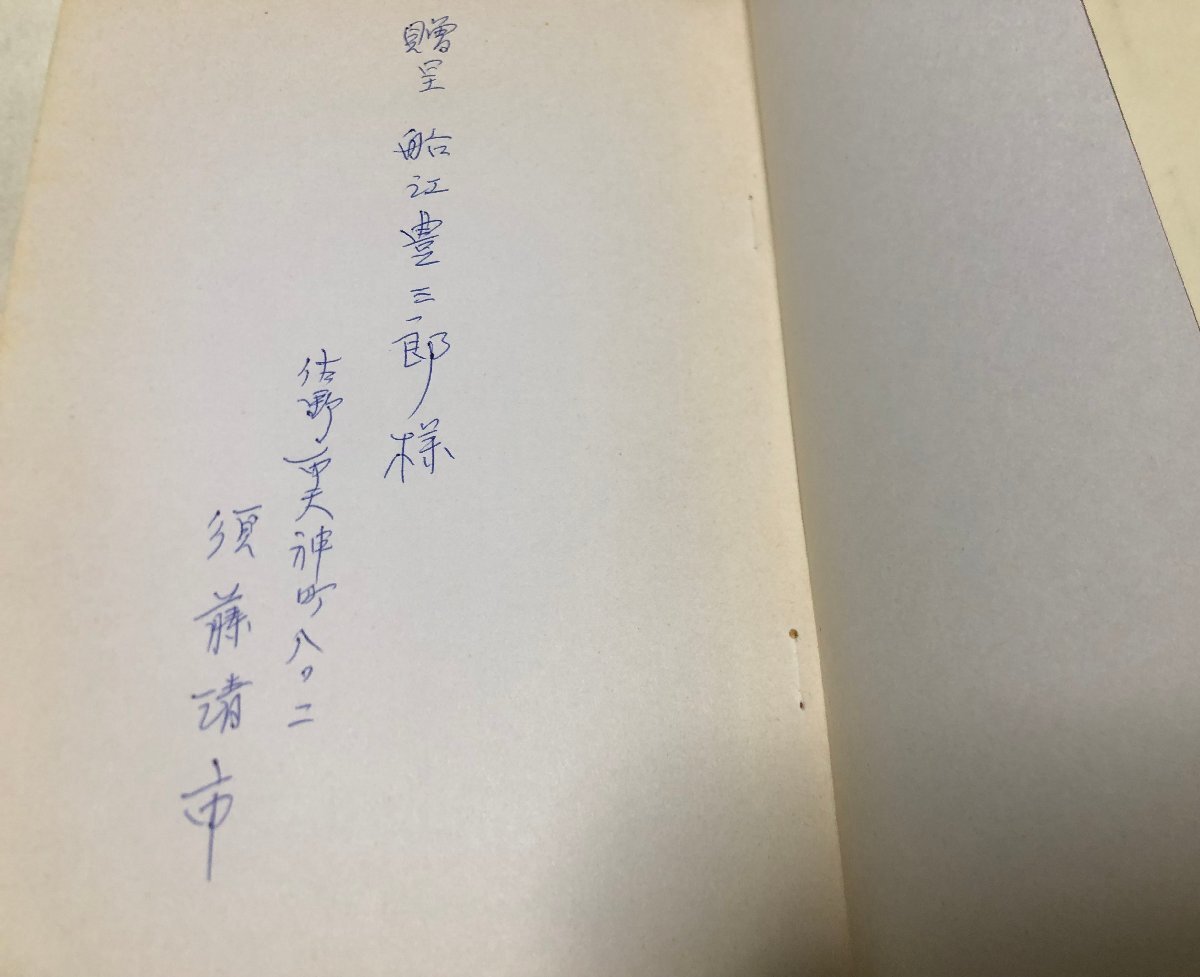 贈呈 船江豊三郎様
佐野市天神町八〇二
須藤清市